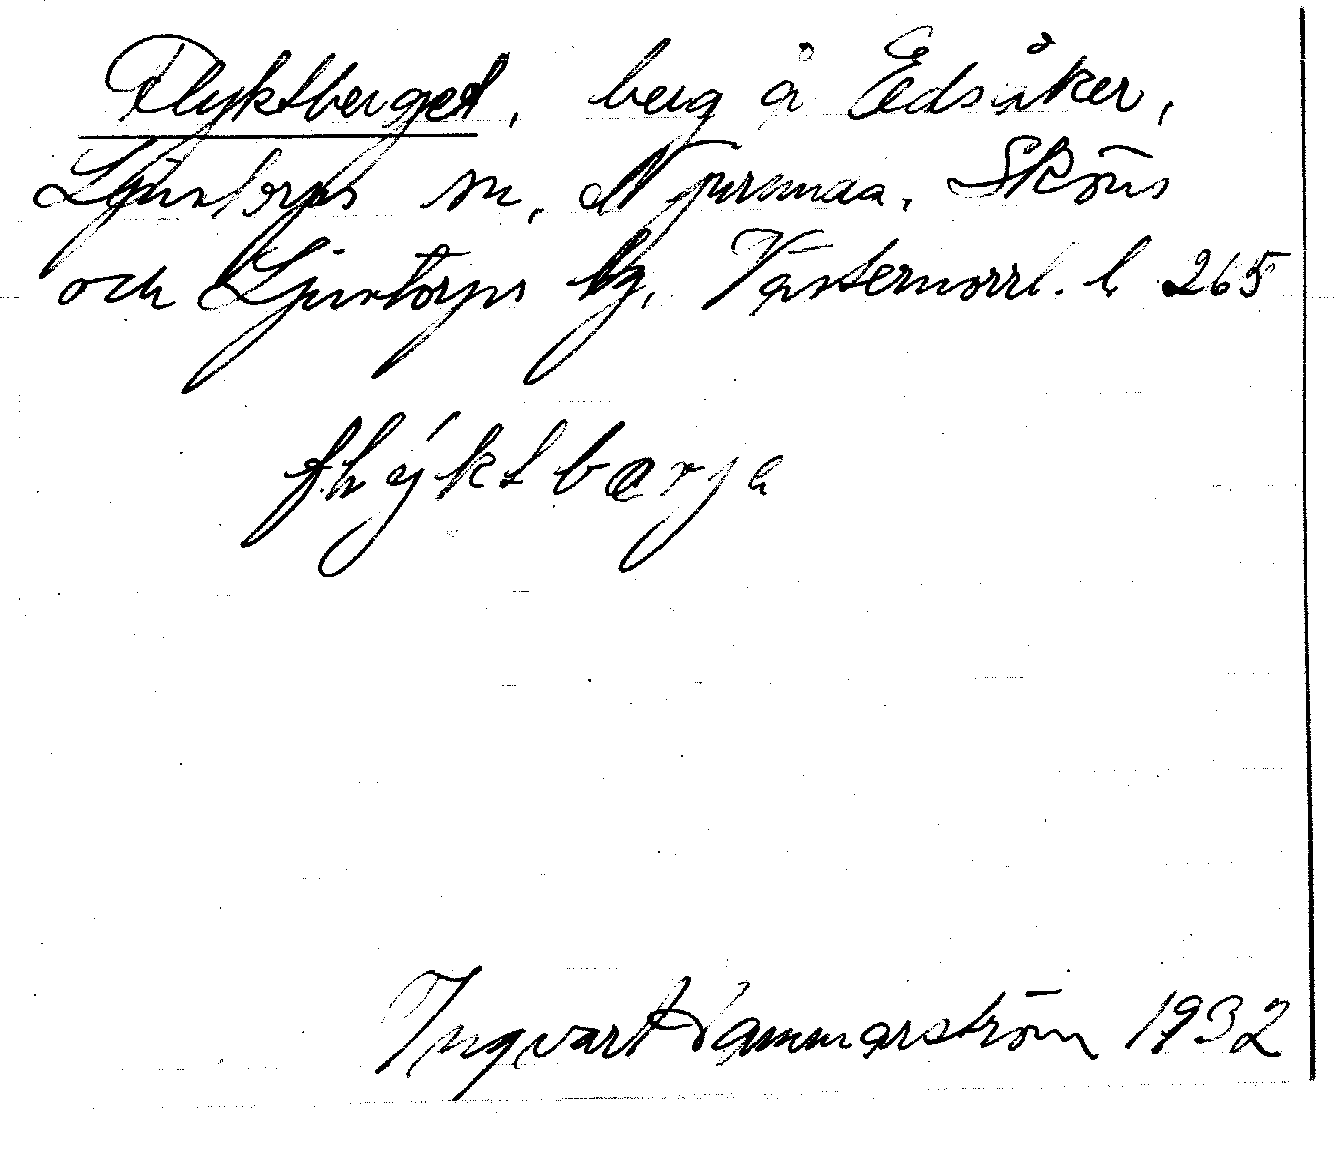 Flyktberget, berg å Edsåker,
Ljustorps sn, Njurunda, Sköns
och Ljustorps tg, Västernorrl. l 265
flýktbærja
Ingvar Hammarström 1932